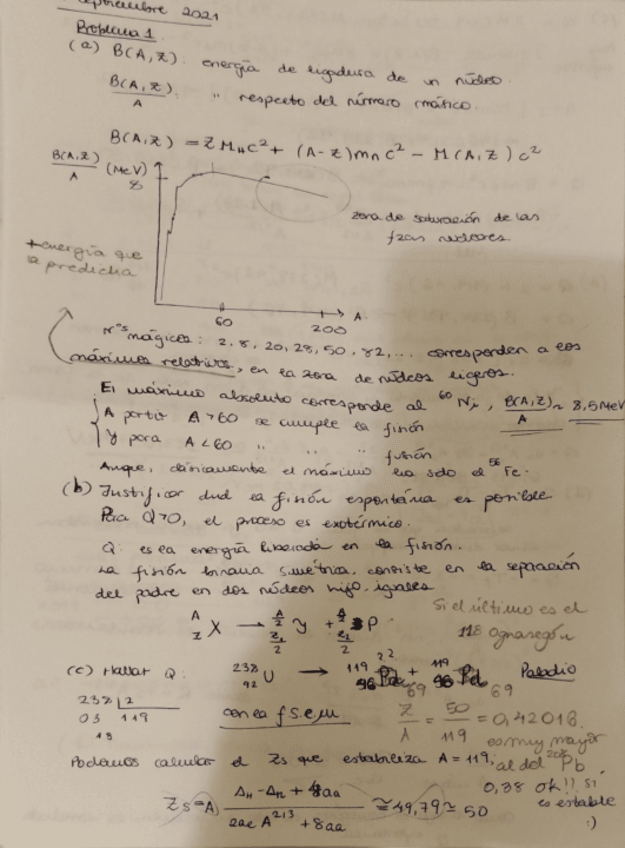 Septiembre 2021
Problema 1.
(a) B(A,Z): energía de ligadura de un núcleo.
B(A,Z)/A : " respecto del número másico.
B(A,Z) = Z M_H c² + (A-Z) m_n c² - M(A,Z) c²
B(A,Z)/A (MeV)
8
zona de saturación de las
fzas nucleares.
+ energía que
la predicha
60
200
A.
Nºs mágicos: 2, 8, 20, 28, 50, 82, ... corresponden a los
máximos relativos, en la zona de núcleos ligeros.
El máximo absoluto corresponde al ⁶⁰Ni, B(A,Z)/A ~ 8,5 MeV
A partir A > 60 se cumple la fisión
Y para A < 60 " " " fusión
Aunque, clásicamente el máximo ha sido el ⁵⁶Fe.
(b) Justificar la fisión espontánea es posible
Para Q>0, el proceso es exotérmico.
Q: es la energía liberada en la fisión.
La fisión binaria simétrica, consiste en la separación
del padre en dos núcleos hijo, iguales
Si el último es el
118 Oganesón
(c) Hallar Q: ²³⁸₉₂U → ¹¹⁹₄₆Pd + ¹¹⁹₄₆Pd Paladio
??
69
69
238 |2
03 119
18
con la f.s.e.m
Z/A = 50/119 = 0,42018.
es muy mayor
al del ²⁰⁸Pb
0,38 ok!! Sí
es estable
:)
Podemos calcular el Zs que estabiliza A = 119,
Zs = A (Δ_H - Δ_n + 4 a_a)/(2 a_c A^2/3 + 8 a_a) ≅ 49,79 ≃ 50